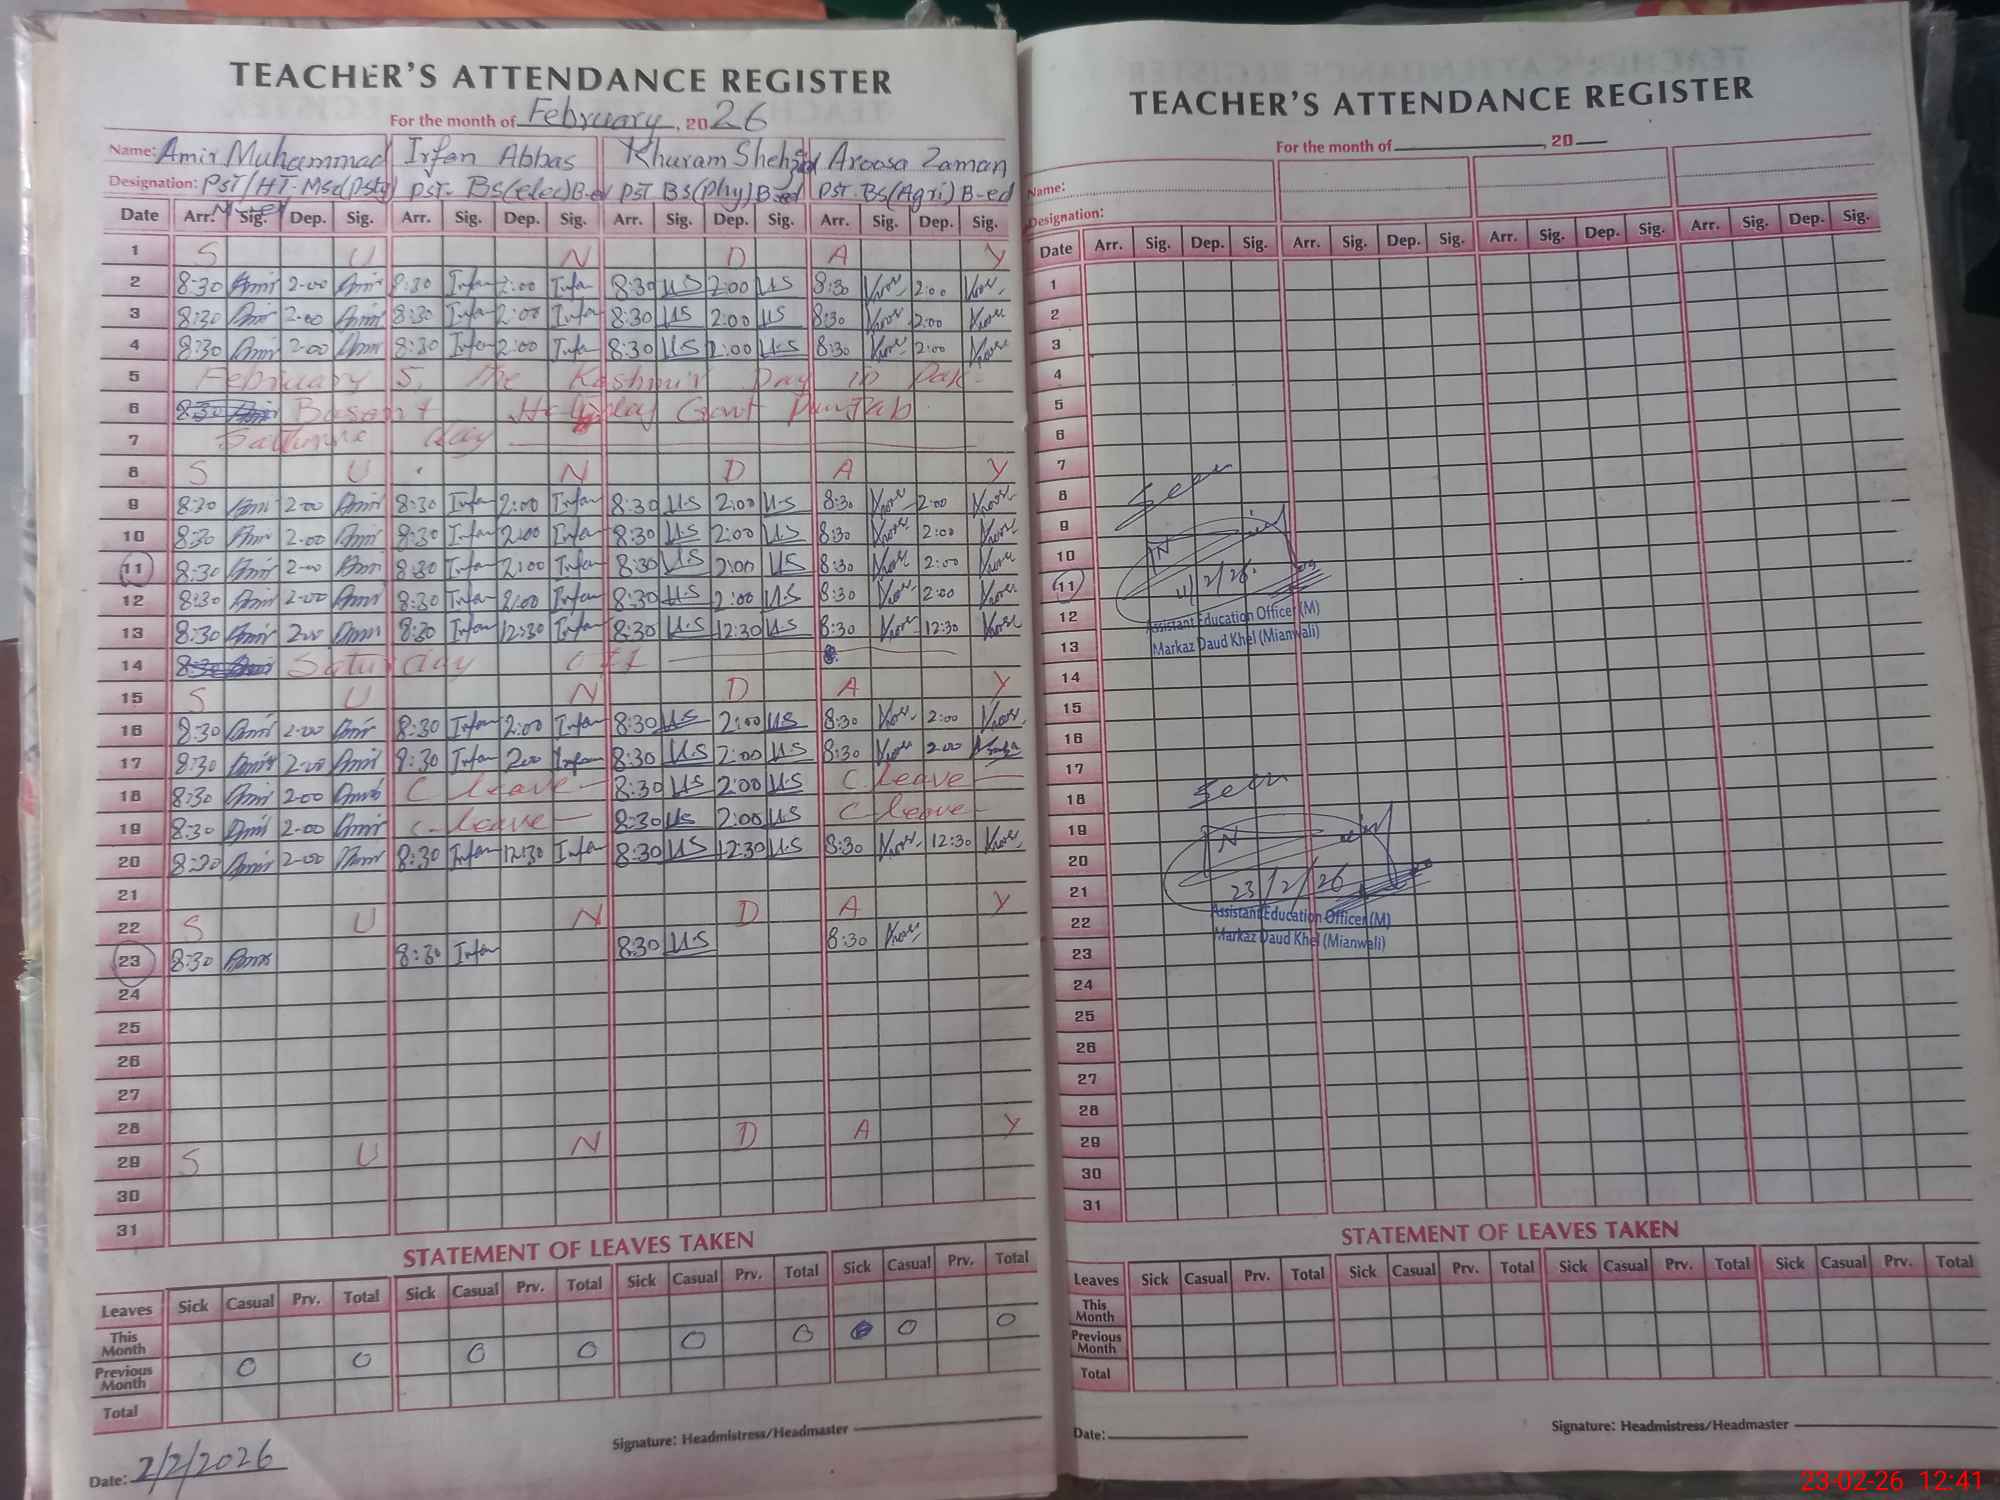 TEACHER'S ATTENDANCE REGISTER
For the month of February, 2026
Name: Amir Muhammad Irfan Abbas Khuram Shehzad Aroosa Zaman
Designation: PST/HT-MSc( PST- BS(elec)B-ed PST BS(Phy)B-ed PST. BS(Agri) B-ed
Date Arr. Sig. Dep. Sig. Arr. Sig. Dep. Sig. Arr. Sig. Dep. Sig. Arr. Sig. Dep. Sig.
1 S U N D A Y
2 8:30 Amir 2-00 Amir 8:30 Irfan 2:00 Irfan 8:30 U.S 2:00 U.S 8:30 2:00
3 8:30 Amir 2-00 Amir 8:30 Irfan 2:00 Irfan 8:30 U.S 2:00 U.S 8:30 2:00
4 8:30 Amir 2-00 Amir 8:30 Irfan 2:00 Irfan 8:30 U.S 2:00 U.S 8:30 2:00
5 February 5, The Kashmir Day in Pak-
6 8:30 Amir Basant Holiday Govt Punjab.
7 day
8 S U N D A Y
9 8:30 Amir 2-00 Amir 8:30 Irfan 2:00 Irfan 8:30 U.S 2:00 U.S 8:30 2:00
10 8:30 Amir 2-00 Amir 8:30 Irfan 2:00 Irfan 8:30 U.S 2:00 U.S 8:30 2:00
11 8:30 Amir 2-00 Amir 8:30 Irfan 2:00 Irfan 8:30 U.S 2:00 U.S 8:30 2:00
12 8:30 Amir 2-00 Amir 8:30 Irfan 2:00 Irfan 8:30 U.S 2:00 U.S 8:30 2:00
13 8:30 Amir 2-00 Amir 8:30 Irfan 12:30 Irfan 8:30 U.S 12:30 U.S 8:30 12:30
14 8:30 Amir Saturday off
15 S U N D A Y
16 8:30 Amir 2-00 Amir 8:30 Irfan 2:00 Irfan 8:30 U.S 2:00 U.S 8:30 2:00
17 8:30 Amir 2-00 Amir 8:30 Irfan 2:00 Irfan 8:30 U.S 2:00 U.S 8:30 2:00
18 8:30 Amir 2-00 Amir C leave 8:30 U.S 2:00 U.S C leave
19 8:30 Amir 2-00 Amir C-leave 8:30 U.S 2:00 U.S C leave
20 8:30 Amir 2-00 Amir 8:30 Irfan 12:30 Irfan 8:30 U.S 12:30 U.S 8:30 12:30
21
22 S U N D A Y
23 8:30 Amir 8:30 Irfan 8:30 U.S 8:30
24
25
26
27
28
29 S U N D A Y
30
31
STATEMENT OF LEAVES TAKEN
Leaves Sick Casual Prv. Total Sick Casual Prv. Total Sick Casual Prv. Total Sick Casual Prv. Total
This Month
Previous Month 0 0 0 0 0 0 0 0
Total
Signature: Headmistress/Headmaster
Date: 2/2/2026
TEACHER'S ATTENDANCE REGISTER
For the month of , 20
Name:
Designation:
Date Arr. Sig. Dep. Sig. Arr. Sig. Dep. Sig. Arr. Sig. Dep. Sig. Arr. Sig. Dep. Sig.
1
2
3
4
5
6
7
Seen
8
9
10
11 11/2/26.
12 Assistant Education Officer (M)
13 Markaz Daud Khel (Mianwali)
14
15
16
17
Seen
18
19
20
21 23/2/26
22 Assistant Education Officer (M)
23 Markaz Daud Khel (Mianwali)
24
25
26
27
28
29
30
31
STATEMENT OF LEAVES TAKEN
Leaves Sick Casual Prv. Total Sick Casual Prv. Total Sick Casual Prv. Total Sick Casual Prv. Total
This Month
Previous Month
Total
Date:
Signature: Headmistress/Headmaster
23-02-26 12:41